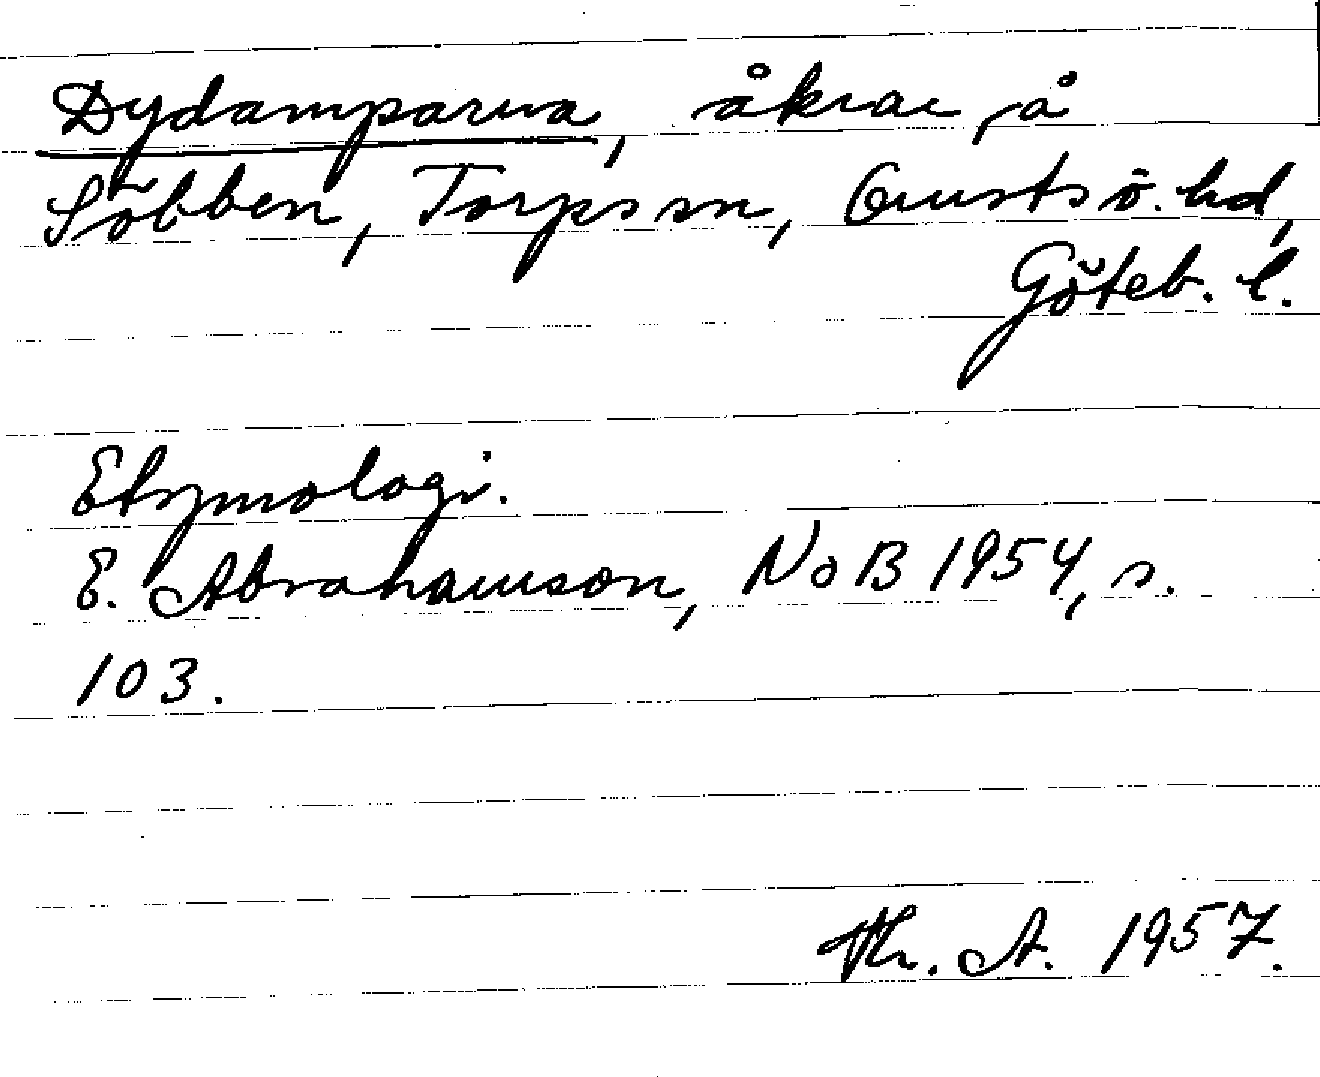 Dydamparna, åkrar på
Söbben, Torps sn, Orusts ö. hd,
Göteb. l.
Etymologi.
E. Abrahamson, NoB 1954, s.
103.
Th. A. 1957.